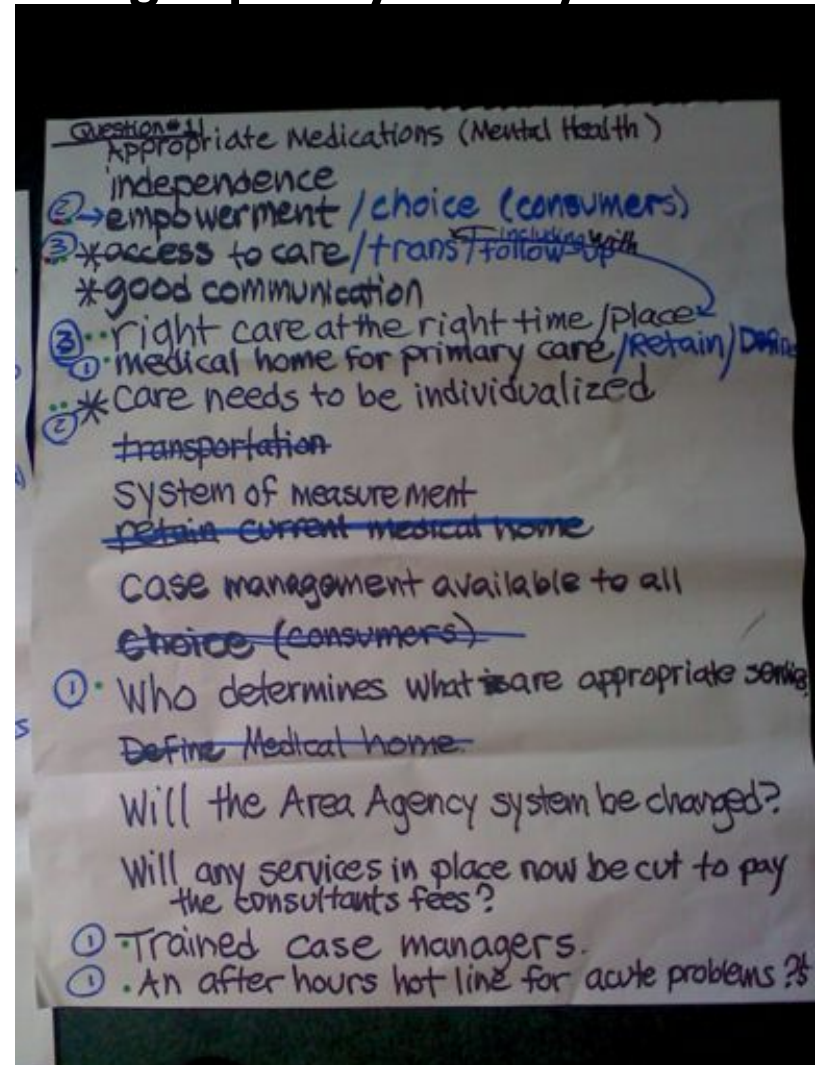 Question #1
Appropriate Medications (Mental Health)
independence
② → empowerment / choice (consumers)
③ * access to care / trans / follow-up including with
* good communication
③ •• right care at the right time / place
① • medical home for primary care / Retain / Define
② •• * Care needs to be individualized
transportation
System of measurement
retain current medical home
Case management available to all
Choice (consumers)
① • Who determines what is are appropriate
Define Medical home.
Will the Area Agency system be changed?
Will any services in place now be cut to pay
the consultants fees?
① • Trained case managers.
① • An after hours hot line for acute problems ?s